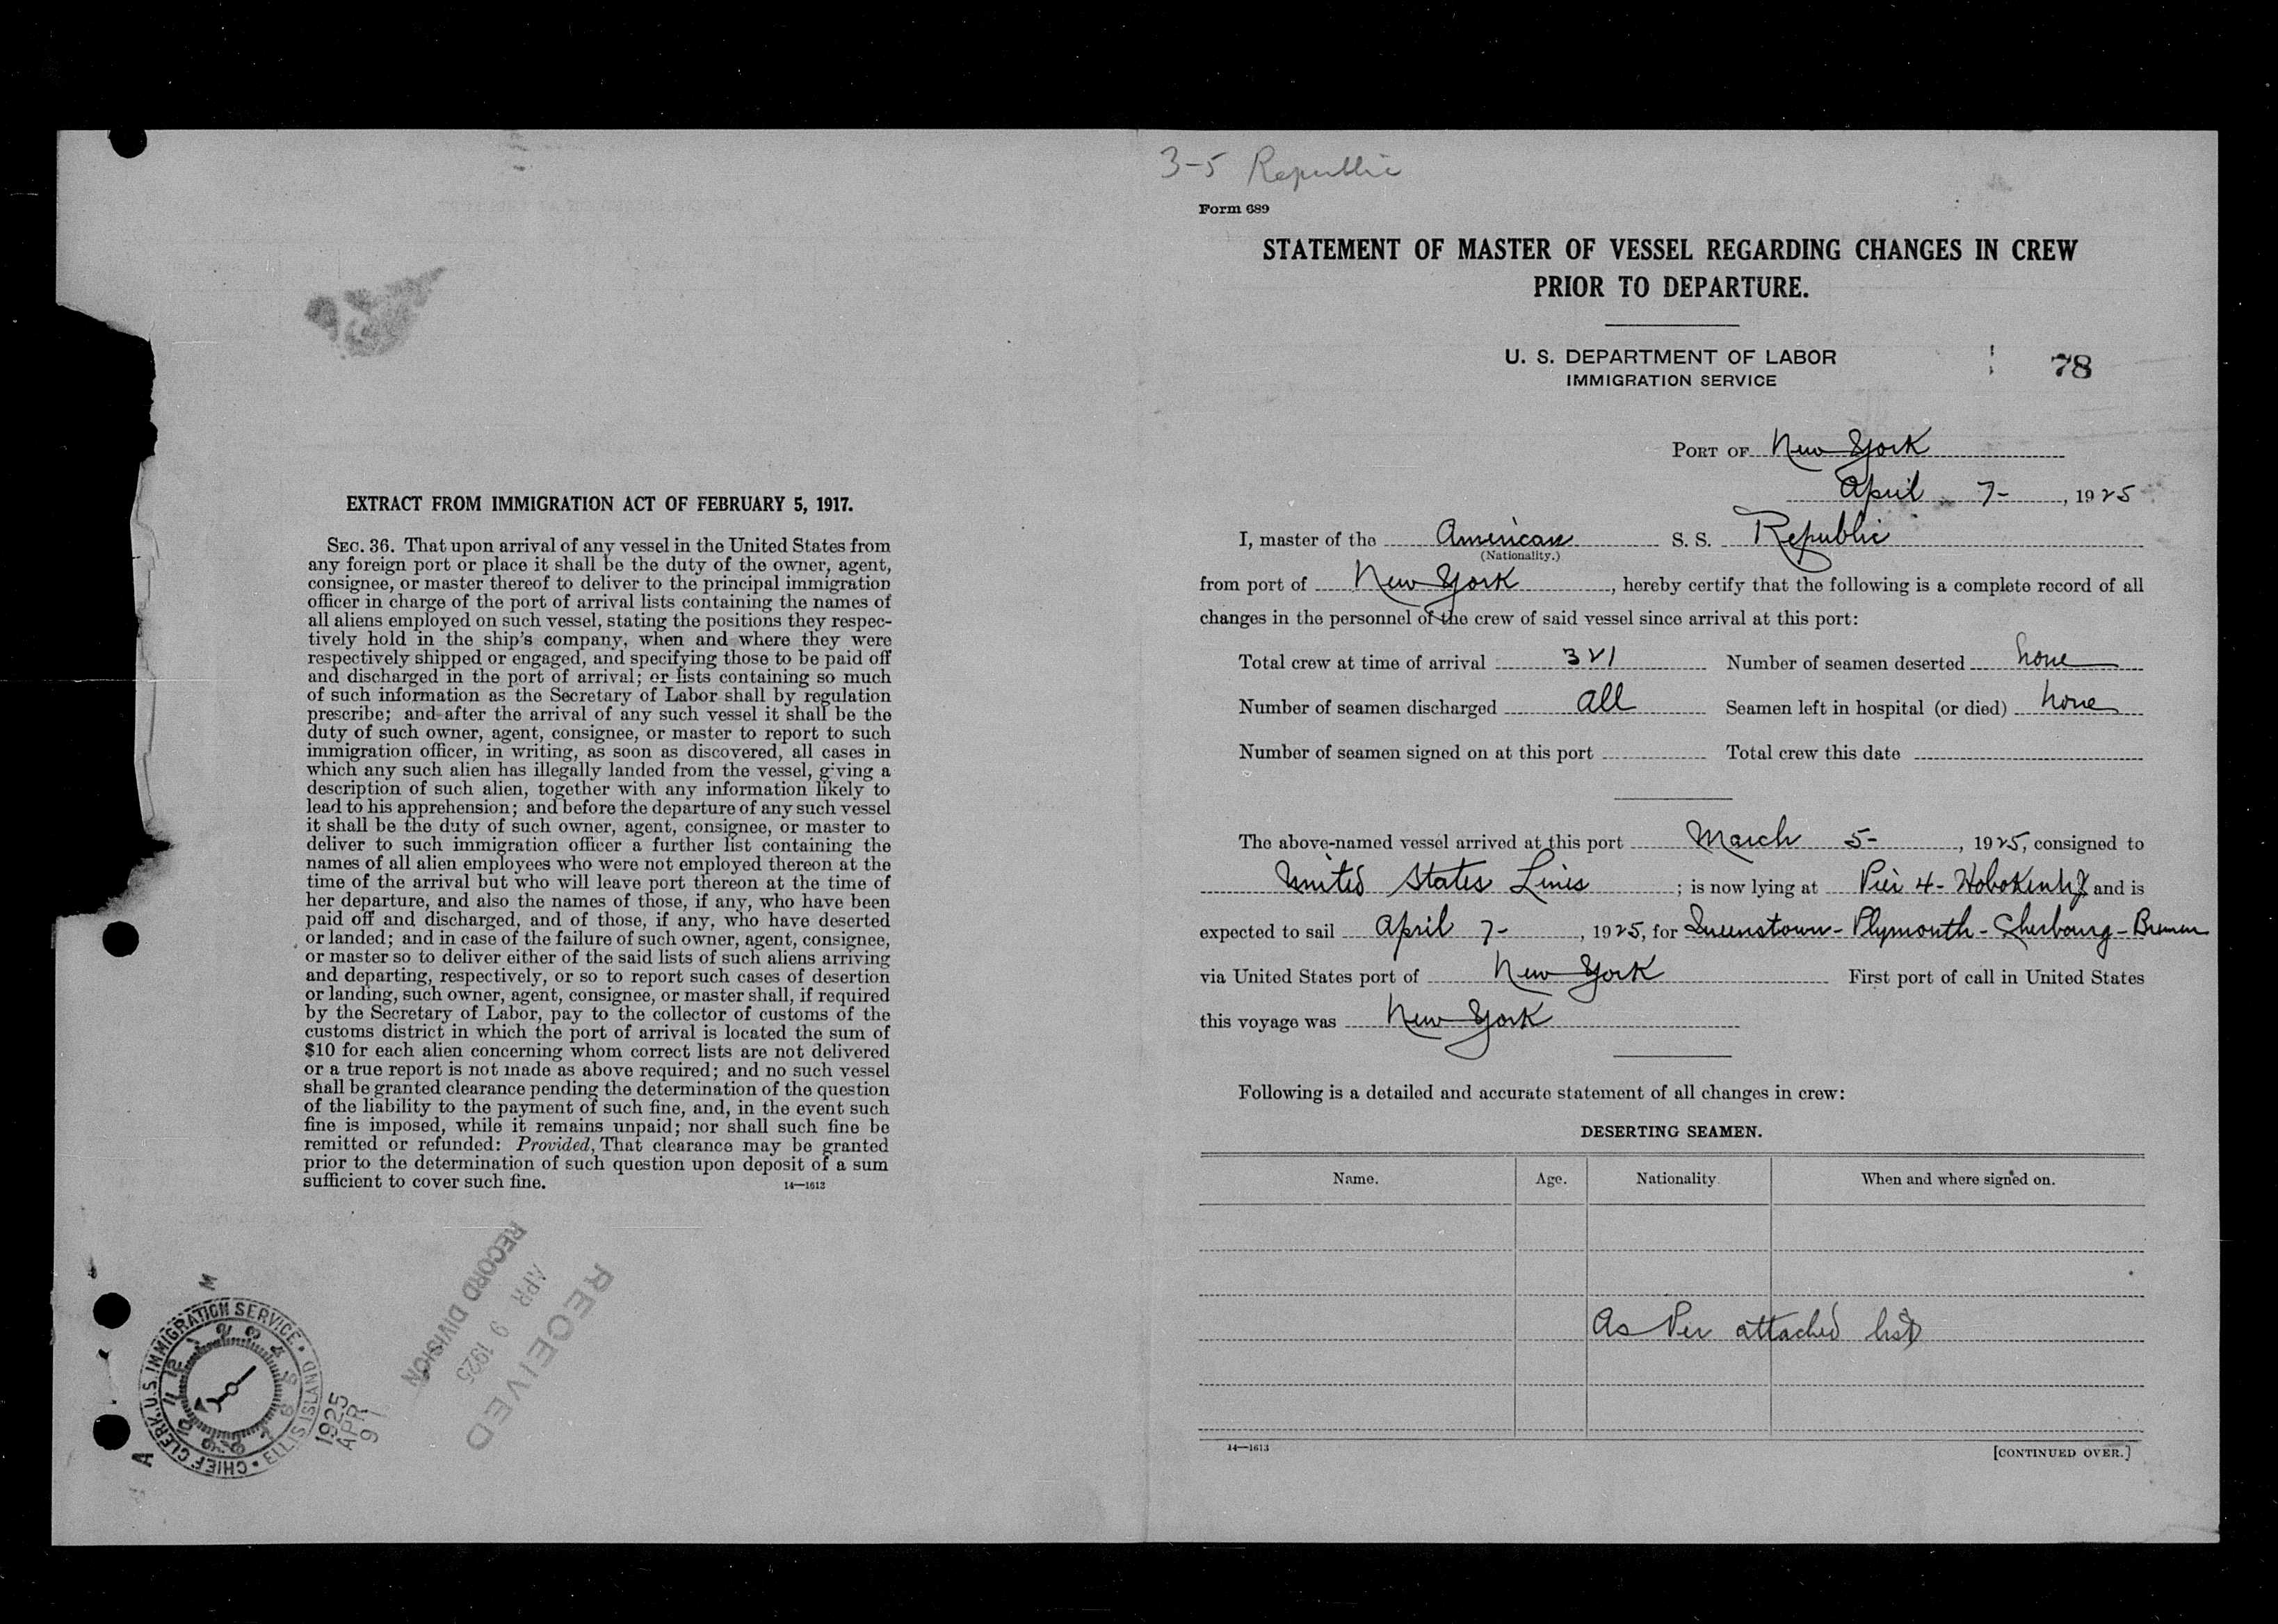 EXTRACT FROM IMMIGRATION ACT OF FEBRUARY 5, 1917.
SEC. 36. That upon arrival of any vessel in the United States from
any foreign port or place it shall be the duty of the owner, agent,
consignee, or master thereof to deliver to the principal immigration
officer in charge of the port of arrival lists containing the names of
all aliens employed on such vessel, stating the positions they respec-
tively hold in the ship's company, when and where they were
respectively shipped or engaged, and specifying those to be paid off
and discharged in the port of arrival; or lists containing so much
of such information as the Secretary of Labor shall by regulation
prescribe; and after the arrival of any such vessel it shall be the
duty of such owner, agent, consignee, or master to report to such
immigration officer, in writing, as soon as discovered, all cases in
which any such alien has illegally landed from the vessel, giving a
description of such alien, together with any information likely to
lead to his apprehension; and before the departure of any such vessel
it shall be the duty of such owner, agent, consignee, or master to
deliver to such immigration officer a further list containing the
names of all alien employees who were not employed thereon at the
time of the arrival but who will leave port thereon at the time of
her departure, and also the names of those, if any, who have been
paid off and discharged, and of those, if any, who have deserted
or landed; and in case of the failure of such owner, agent, consignee,
or master so to deliver either of the said lists of such aliens arriving
and departing, respectively, or so to report such cases of desertion
or landing, such owner, agent, consignee, or master shall, if required
by the Secretary of Labor, pay to the collector of customs of the
customs district in which the port of arrival is located the sum of
$10 for each alien concerning whom correct lists are not delivered
or a true report is not made as above required; and no such vessel
shall be granted clearance pending the determination of the question
of the liability to the payment of such fine, and, in the event such
fine is imposed, while it remains unpaid; nor shall such fine be
remitted or refunded: Provided, That clearance may be granted
prior to the determination of such question upon deposit of a sum
sufficient to cover such fine.
14—1613
RECEIVED
APR 9 1925
RECORD DIVISION
CHIEF CLERK, U.S. IMMIGRATION SERVICE • ELLIS ISLAND •
1925
APR
9
M
A
3-5 Republic
Form 689
STATEMENT OF MASTER OF VESSEL REGARDING CHANGES IN CREW
PRIOR TO DEPARTURE.
U. S. DEPARTMENT OF LABOR
IMMIGRATION SERVICE
78
PORT OF New York
April 7-, 1925
I, master of the American S. S. Republic
(Nationality.)
from port of New York, hereby certify that the following is a complete record of all
changes in the personnel of the crew of said vessel since arrival at this port:
Total crew at time of arrival 321 Number of seamen deserted None
Number of seamen discharged all Seamen left in hospital (or died) None
Number of seamen signed on at this port Total crew this date
The above-named vessel arrived at this port March 5-, 1925, consigned to
United States Lines; is now lying at Pier 4- Hoboken NJ and is
expected to sail April 7-, 1925, for Queenstown- Plymouth- Cherbourg- Bremen
via United States port of New York First port of call in United States
this voyage was New York
Following is a detailed and accurate statement of all changes in crew:
DESERTING SEAMEN.
Name. Age. Nationality. When and where signed on.
As Per attached list
14—1613
[CONTINUED OVER.]